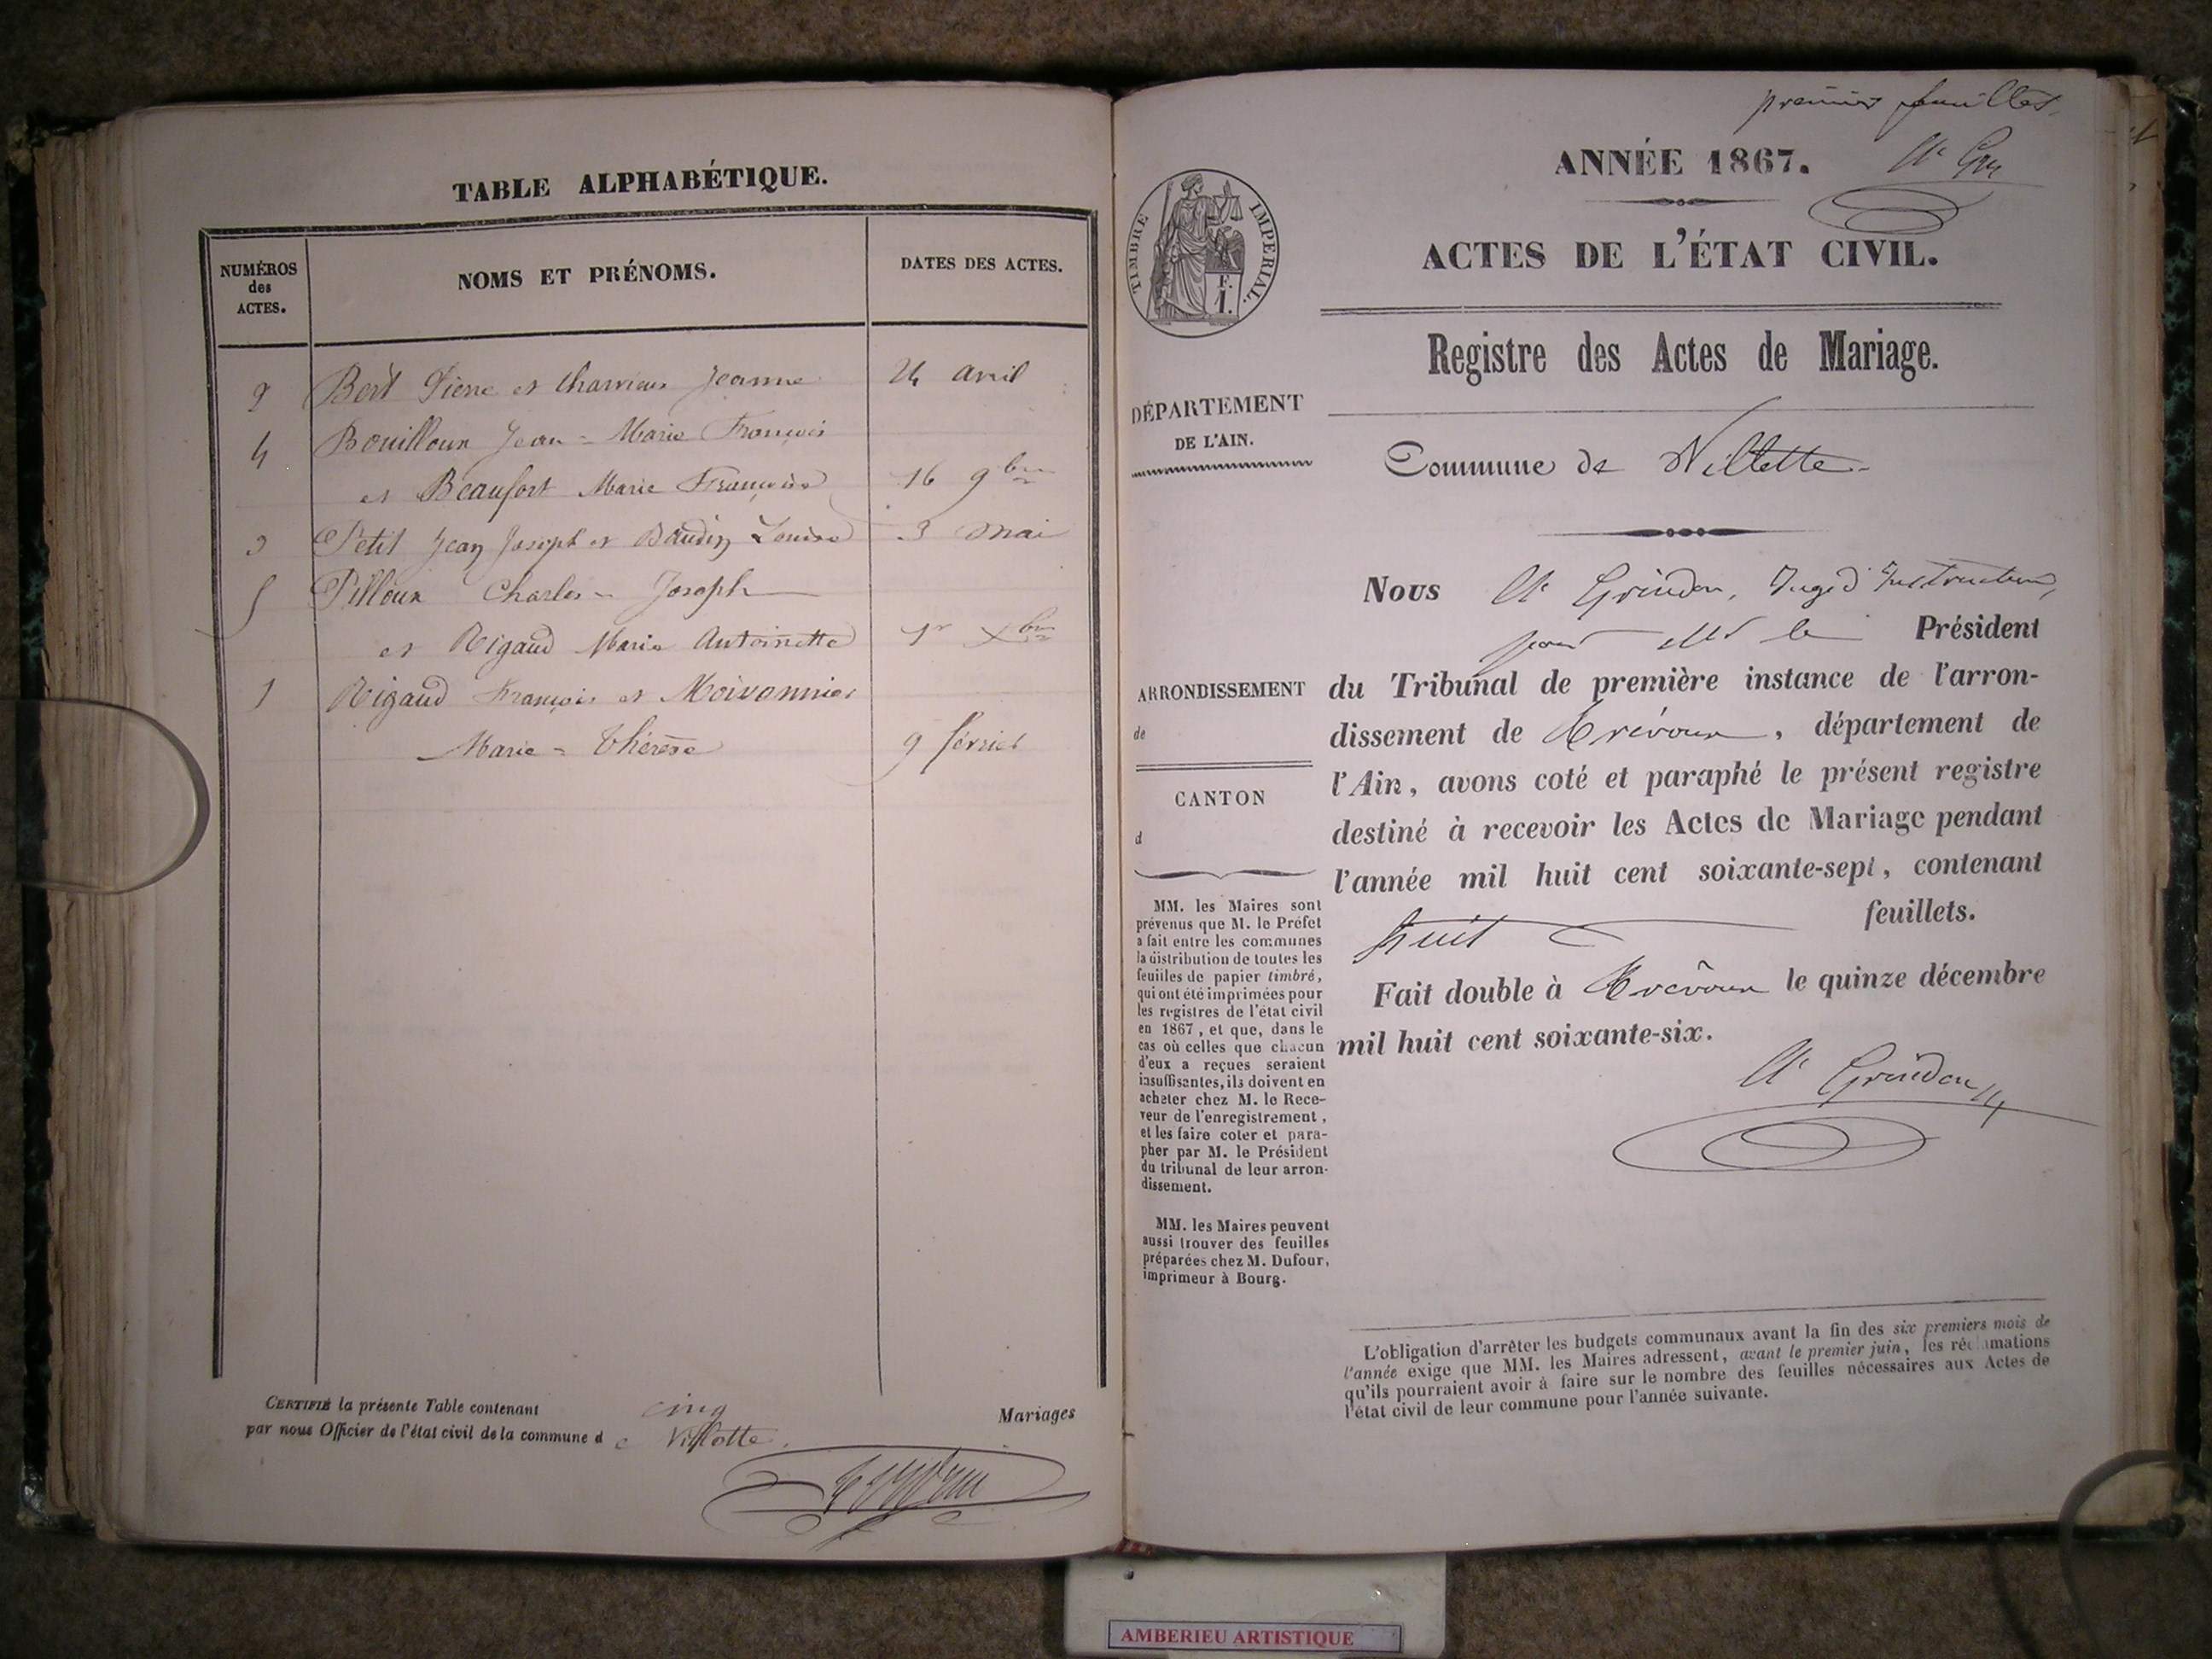 TABLE ALPHABÉTIQUE.
NUMÉROS
des
ACTES.
NOMS ET PRÉNOMS.
DATES DES ACTES.
2 Bert Pierre et Jeanne 24 avril
4 Bouilloux Jean-Marie François
et Beaufort Marie Françoise 16 9bre
3 Petit Jean Joseph et Baudin Louise 3 Mai
5 Pilloux Charles-Joseph
et Rigaud Marie Antoinette 1er Xbre
1 Rigaud François et
Marie-Thérèse 9 février
CERTIFIÉ la présente Table contenant cinq Mariages
par nous Officier de l'état civil de la commune de Villette.
premier feuillet.
ANNÉE 1867.
ACTES DE L'ÉTAT CIVIL.
TIMBRE IMPÉRIAL.
F.
1.
Registre des Actes de Mariage.
DÉPARTEMENT
DE L'AIN.
Commune de Villette
Nous At Grindon, Juge d'Instruction,
pour Mr le Président
ARRONDISSEMENT
de
CANTON
d
du Tribunal de première instance de l'arron-
dissement de Trévoux, département de
l'Ain, avons coté et paraphé le présent registre
destiné à recevoir les Actes de Mariage pendant
l'année mil huit cent soixante-sept, contenant
huit feuillets.
Fait double à Trévoux le quinze décembre
mil huit cent soixante-six.
At Grindon
MM. les Maires sont
prévenus que M. le Préfet
a fait entre les communes
la distribution de toutes les
feuilles de papier timbré,
qui ont été imprimées pour
les registres de l'état civil
en 1867, et que, dans le
cas où celles que chacun
d'eux a reçues seraient
insuffisantes, ils doivent en
acheter chez M. le Rece-
veur de l'enregistrement,
et les faire coter et para-
pher par M. le Président
du tribunal de leur arron-
dissement.
MM. les Maires peuvent
aussi trouver des feuilles
préparées chez M. Dufour,
imprimeur à Bourg.
L'obligation d'arrêter les budgets communaux avant la fin des six premiers mois de
l'année exige que MM. les Maires adressent, avant le premier juin, les réclamations
qu'ils pourraient avoir à faire sur le nombre des feuilles nécessaires aux Actes de
l'état civil de leur commune pour l'année suivante.
AMBERIEU ARTISTIQUE